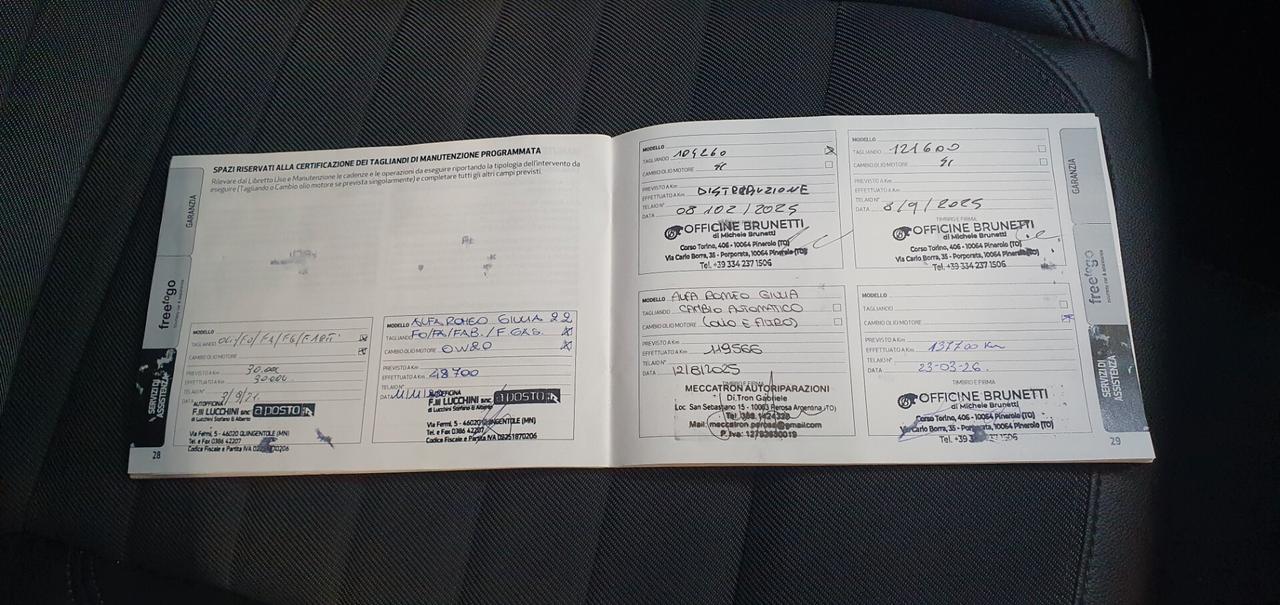 SPAZI RISERVATI ALLA CERTIFICAZIONE DEI TAGLIANDI DI MANUTENZIONE PROGRAMMATA
Rilevare dal Libretto Uso e Manutenzione le cadenze e le operazioni da eseguire riportando la tipologia dell'intervento da
eseguire (Tagliando o Cambio olio motore se prevista singolarmente) e completare tutti gli altri campi previsti.
GARANZIA
freetogo
SERVIZI DI
ASSISTENZA
MODELLO
TAGLIANDO
CAMBIO OLIO MOTORE
PREVISTO A Km 30.000
EFFETTUATO A Km 30.000
TELAIO N°
DATA 3/9/21
AUTOFFICINA
F.lli LUCCHINI snc a posto
di Lucchini Stefano & Alberto
Via Fermi, 5 - 46020 QUINGENTOLE (MN)
Tel. e Fax 0386 42207
Codice Fiscale e Partita IVA 02251870206
28
MODELLO ALFA ROMEO GIULIA 2.2
TAGLIANDO FO/FA/FAB./F.GAS.
CAMBIO OLIO MOTORE 0W20
PREVISTO A Km
EFFETTUATO A Km 48700
TELAIO N°
DATA
AUTOFFICINA
F.lli LUCCHINI snc a posto
di Lucchini Stefano & Alberto
Via Fermi, 5 - 46020 QUINGENTOLE (MN)
Tel. e Fax 0386 42207
Codice Fiscale e Partita IVA 02251870206
MODELLO
TAGLIANDO 104260
CAMBIO OLIO MOTORE SI
PREVISTO A Km
EFFETTUATO A Km DISTRIBUZIONE
TELAIO N°
DATA 08/02/2025
OFFICINE BRUNETTI
di Michele Brunetti
Corso Torino, 406 - 10064 Pinerolo (TO)
Via Carlo Borra, 35 - Porporata, 10064 Pinerolo (TO)
Tel. +39 334 237 1506
MODELLO
TAGLIANDO 121600
CAMBIO OLIO MOTORE SI
PREVISTO A Km
EFFETTUATO A Km
TELAIO N°
DATA 8/9/2025
TIMBRO E FIRMA
OFFICINE BRUNETTI
di Michele Brunetti
Corso Torino, 406 - 10064 Pinerolo (TO)
Via Carlo Borra, 35 - Porporata, 10064 Pinerolo (TO)
Tel. +39 334 237 1506
MODELLO ALFA ROMEO GIULIA
TAGLIANDO CAMBIO AUTOMATICO
CAMBIO OLIO MOTORE (OLIO E FILTRO)
PREVISTO A Km
EFFETTUATO A Km 119566
TELAIO N°
DATA 12/8/2025
TIMBRO E FIRMA
MECCATRON AUTORIPARAZIONI
Di Tron Gabriele
Loc San Sebastiano 15 - 10063 Perosa Argentina (TO)
Mail: meccatron.perosa@gmail.com
P. Iva: 12793630019
MODELLO
TAGLIANDO
CAMBIO OLIO MOTORE
PREVISTO A Km
EFFETTUATO A Km 137700 Km
TELAIO N°
DATA 23-03-26.
TIMBRO E FIRMA
OFFICINE BRUNETTI
di Michele Brunetti
Corso Torino, 406 - 10064 Pinerolo (TO)
Via Carlo Borra, 35 - Porporata, 10064 Pinerolo (TO)
GARANZIA
freetogo
SERVIZI DI
ASSISTENZA
29